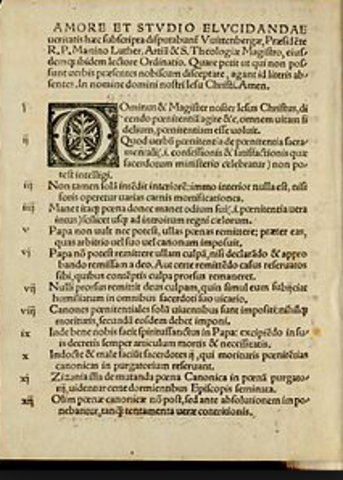 AMORE ET STVDIO ELVCIDANDAE
ueritatis hæc subscripta disputabunť Vuittenbergæ, Præsidēte
R. P. Martino Luther. Artiū & S. Theologiæ Magistro, eius-
demq; ibidem lectore Ordinatio. Quare petit ut qui non pos
sunt uerbis præsentes nobiscum disceptare, agant id literis ab-
sentes. In nomine domini nostri Iesu Christi. Amen.
j Ominus & Magister noster Iesus Christus, di
cendo pœnitentiā agite &c, omnem uitam fi
delium, pœnitentiam esse uoluit.
ij Quod uerbū pœnitentie de pœnitentia sacra-
mentali (.i. confessionis & satisfactionis quæ
sacerdotum ministerio celebratur) non po-
test intelligi.
iij Non tamen solā intēdit interiorē: immo interior nulla est, nisi
foris operetur uarias carnis mortificationes.
iiij Manet itaq; pœna donec manet odium sui (.i. pœnitentia uera
intus) scilicet usq; ad introitum regni cælorum.
v Papa non uult nec potest, ullas pœnas remittere; præter eas,
quas arbitrio uel suo uel canonum imposuit.
vj Papa nō potest remittere ullam culpā, nisi declarādo & appro
bando remissam a deo. Aut certe remittēdo casus reseruatos
sibi, quibus contēptis culpa prorsus remaneret.
vij Nulli prorsus remittit deus culpam, quin simul eum subijciat
humiliatum in omnibus sacerdoti suo uicario.
viij Canones pœnitentiales solū uiuentibus sunt impositi; nihilq;
morituris, secundū eosdem debet imponi.
ix Inde bene nobis facit spiritussanctus in Papa: excipiēdo in su-
is decretis semper articulum mortis & necessitatis.
x Indocte & male faciūt sacerdotes ij, qui morituris pœnitētias
canonicas in purgatorium reseruant.
xj Zizania illa de mutanda pœna Canonica in pœnā purgato-
rij, uidentur certe dormientibus Episcopis seminata.
xij Olim pœnæ canonicæ nō post, sed ante absolutionem impo
nebantur, tanq̄ tentamenta ueræ contritionis.